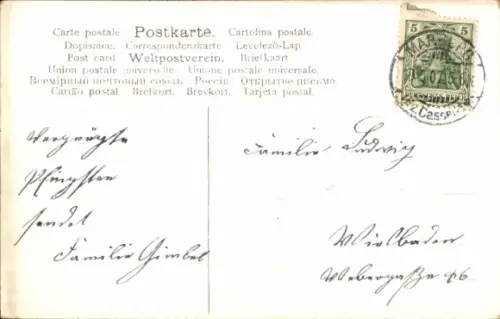 Carte postale Postkarte. Cartolina postale
Dopisnice. Correspondenzkarte Levelező-Lap.
Post card Weltpostverein. Briefkaart
Union postale universelle. Unione postale universale.
Всемірный почтовый союз. Россія Открытое письмо.
Cartão postal. Brefkort. Brevkort. Tarjeta postal.
5 5
Cassel
Vergnügte
Pfingsten
sendet
Familie Gimbel
Familie Ludwig
Wiesbaden
Webergaße 46